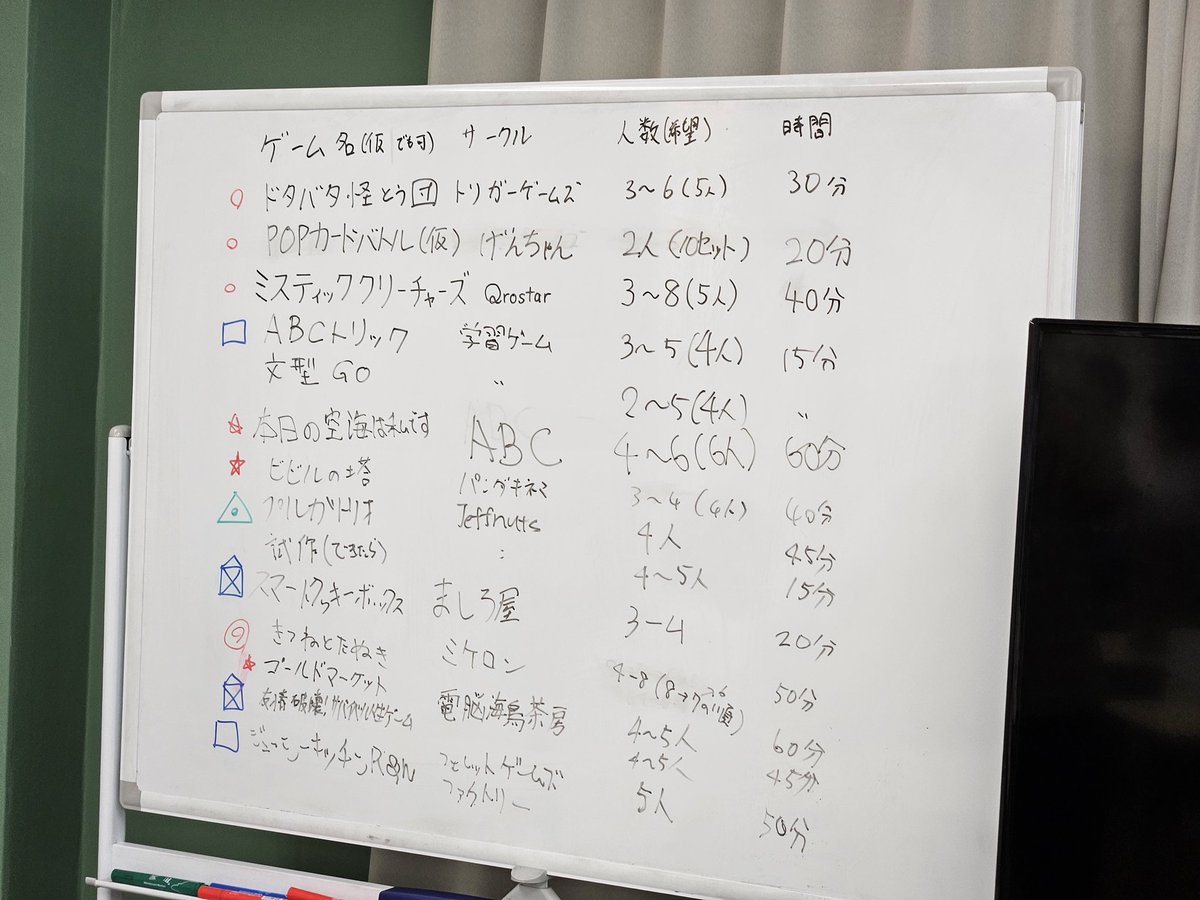 ゲーム名(仮でも可) サークル 人数(希望) 時間
ドタバタ怪とう団 トリガーゲームズ 3〜6(5人) 30分
POPカードバトル(仮) げんちゃん 2人(10セット) 20分
ミスティッククリーチャーズ Qrostar 3〜8(5人) 40分
ABCトリック 学習ゲーム 3〜5(4人) 15分
文型GO 〃 2〜5(4人) 〃
本日の空海は私です ABC 4〜6(6人) 60分
ビビルの塔 パンダキネマ 3〜4(4人) 40分
プルガトリオ Jeffnuts 4人 45分
試作(できたら) : 4〜5人 15分
スマートクッキーボックス ましろ屋 3-4 20分
きつねとたぬき ミケロン 4-8(8→7→6の順) 50分
ゴールドマーケット 電脳海鳥茶房 4〜5人 60分
友情破壊!サバイバル ゲーム 4〜5人 45分
キッチンRUN フェレットゲームズファクトリー 5人 50分